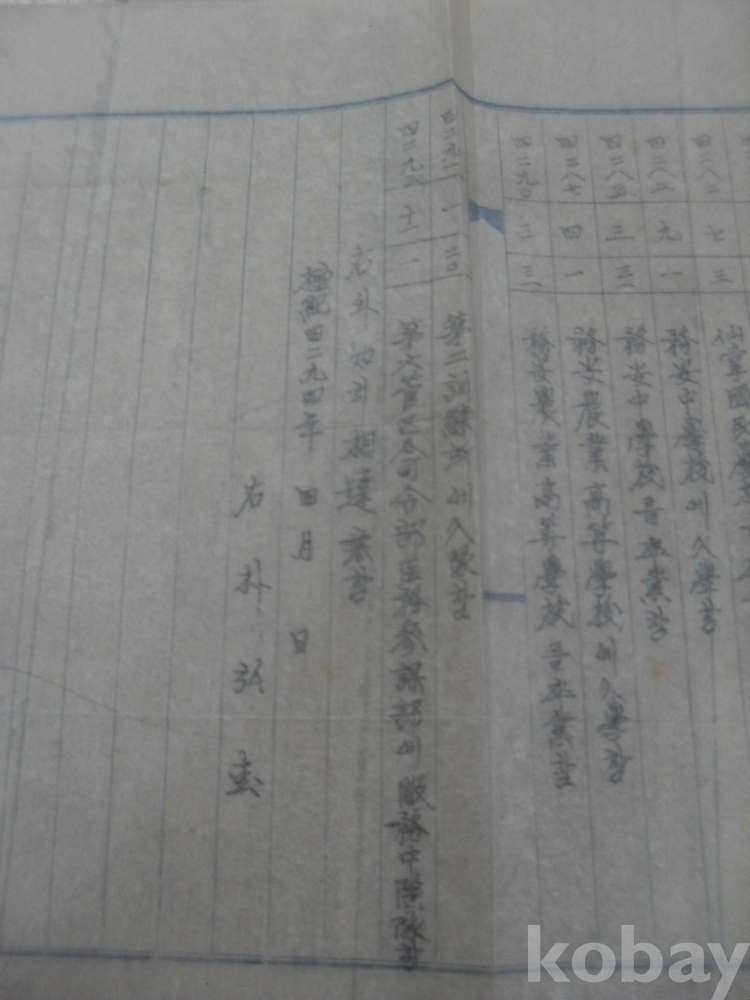 四二八二 七 三 國民學校
四二八二 九 一 務安中學校에 入學함
四二八五 三 三一 務安中學校를 卒業함
四二八七 四 一 務安農業高等學校에 入學함
四二九〇 三 三 務安農業高等學校를 卒業함
四二九一 一 二〇 第二訓練所에 入隊함
四二九二 十一 一 第六管區司令部医務參謀部에 服務中除隊함
右와 如히 相違 無함
檀紀四二九四年 四月 日
右 朴弘圭
kobay